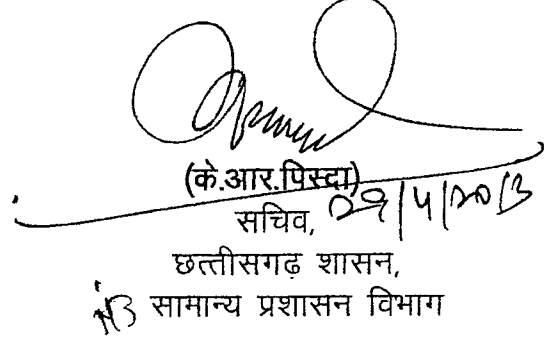 (के.आर.पिस्दा)
सचिव,
छत्तीसगढ़ शासन,
सामान्य प्रशासन विभाग